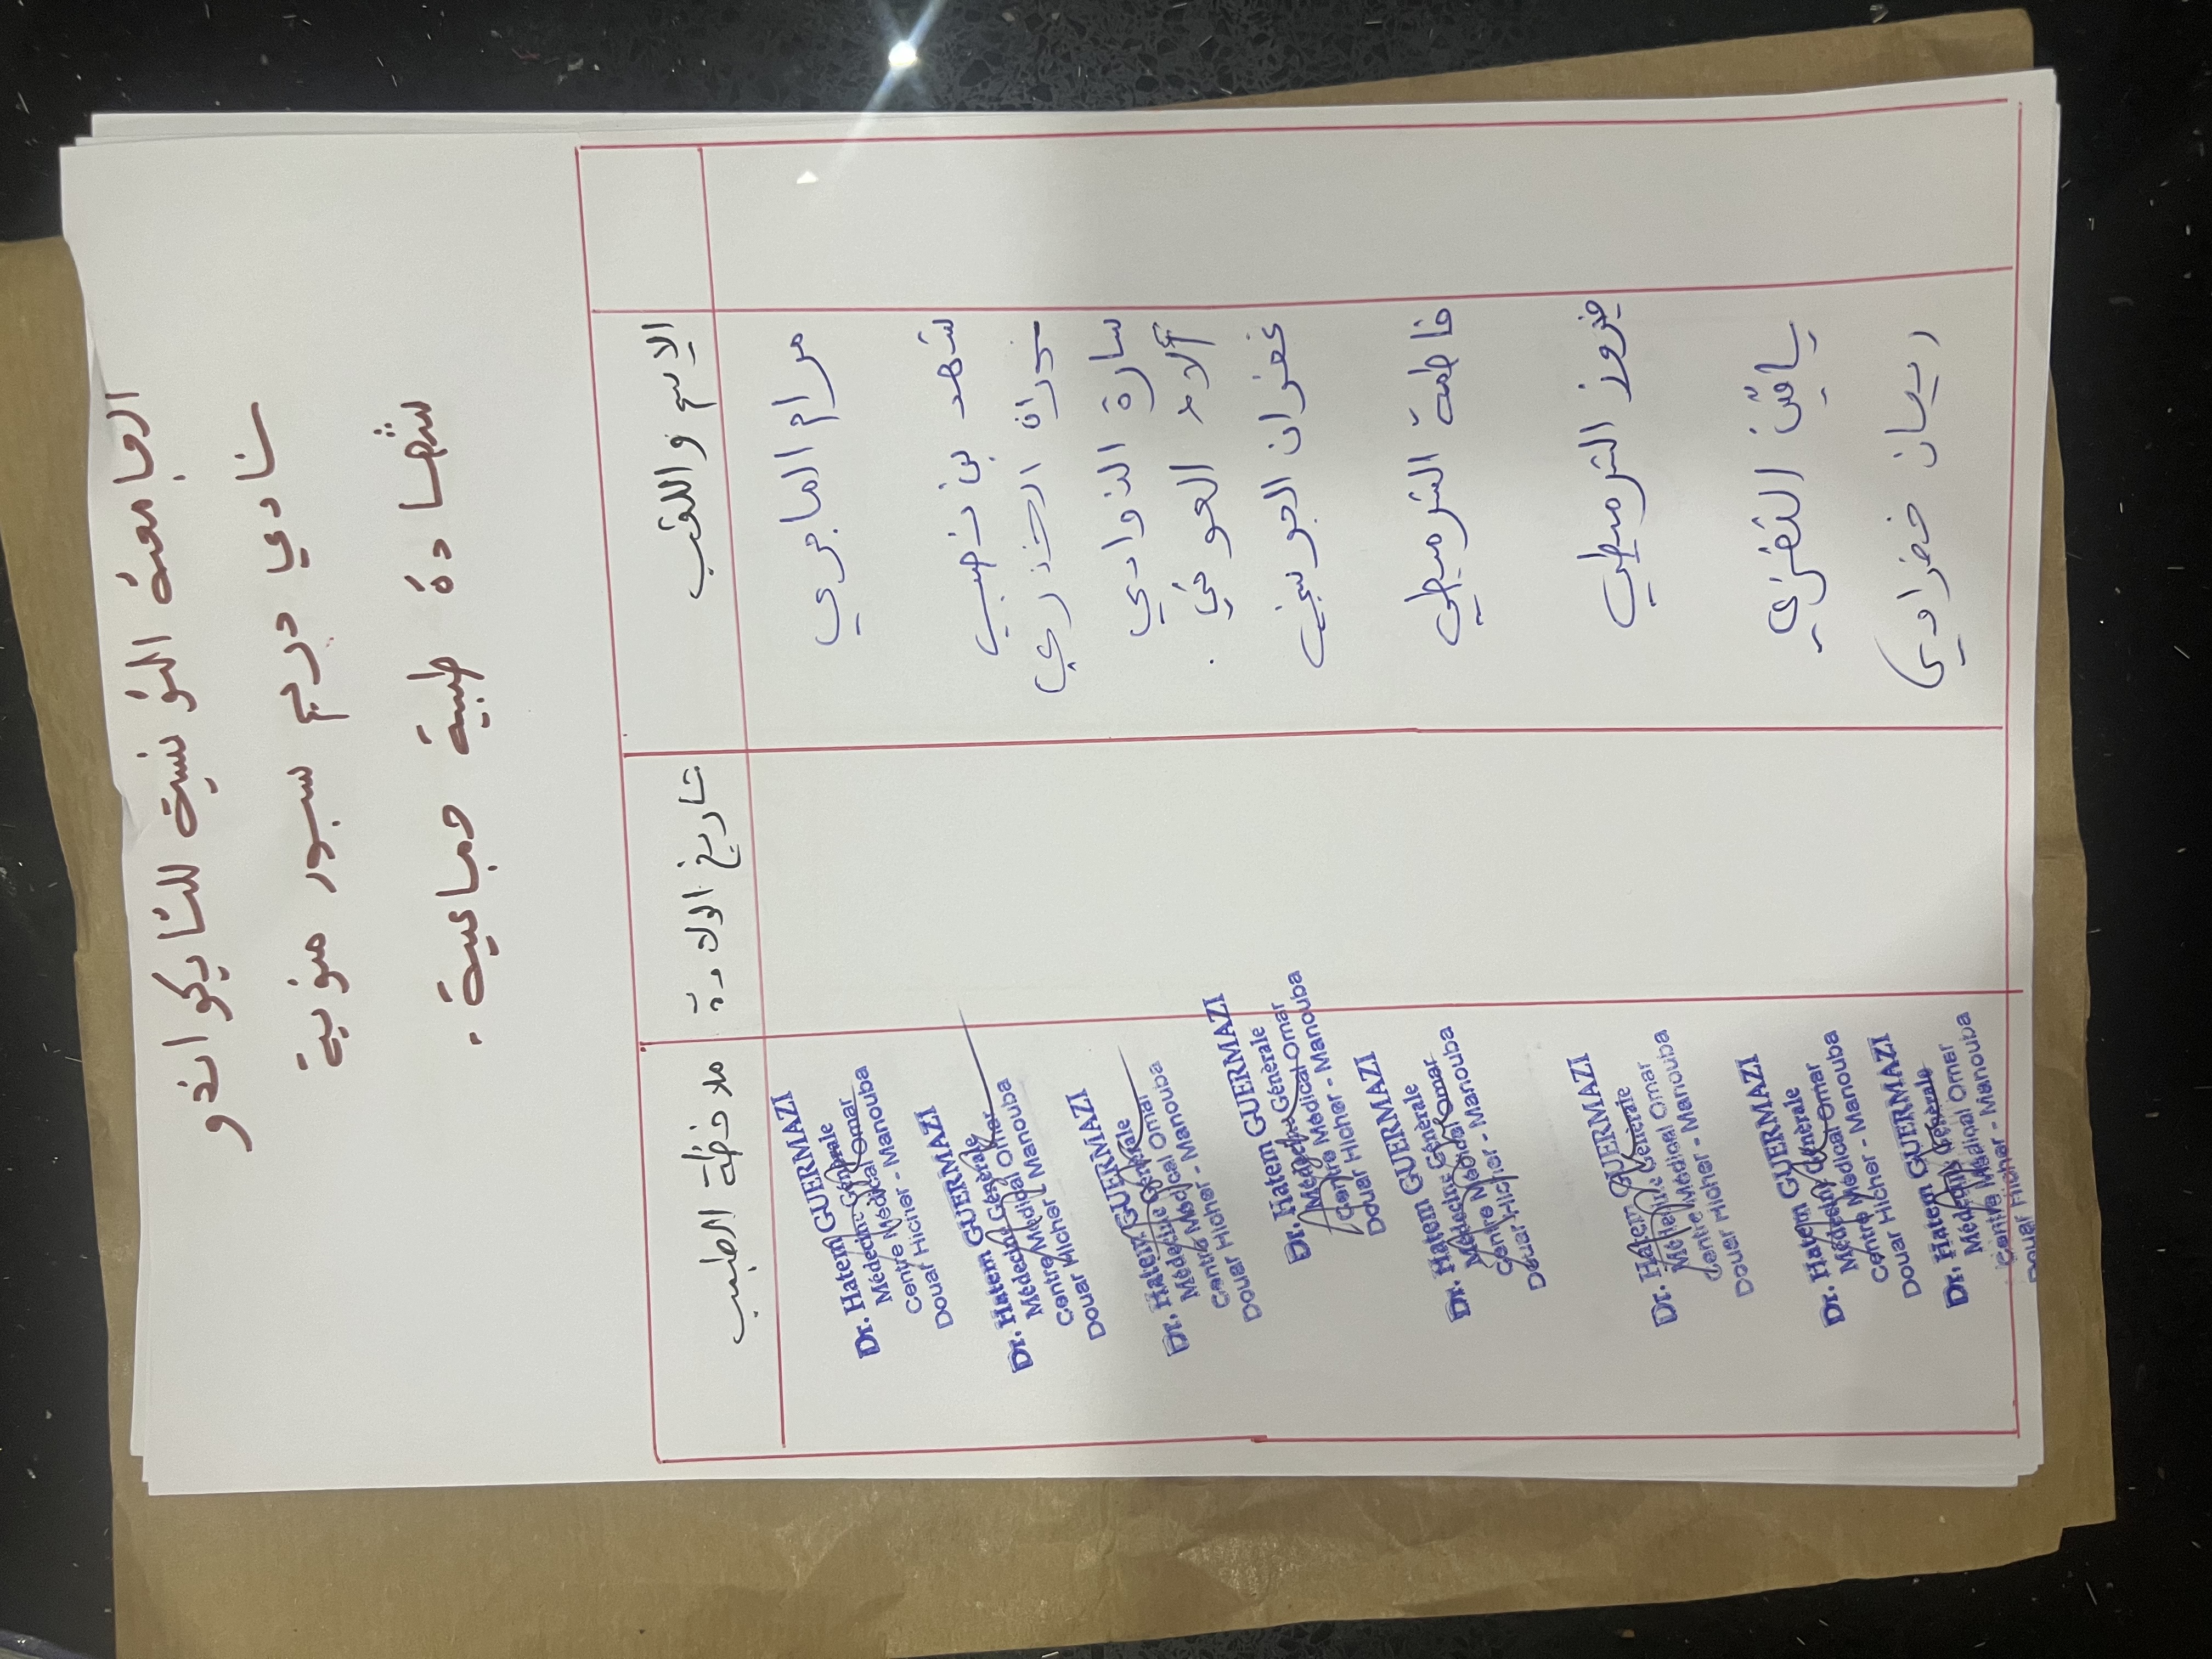 الجامعة التونسية للتايكواندو
نادي دريم سبور منوبة
شهادة طبية جماعية.
الاسم واللقب
تاريخ الولادة
ملاحظة الطبيب
مرام الماجري
Dr. Hatem GUERMAZI
Médecine Générale
Centre Médical Omar
Douar Hicher - Manouba
شهد بن نصيب
Dr. Hatem GUERMAZI
Médecine Générale
Centre Médical Omar
Douar Hicher - Manouba
سارة الذوادي
Dr. Hatem GUERMAZI
Médecine Générale
Centre Médical Omar
Douar Hicher - Manouba
آلاء العوني.
غفران الجويني
Dr. Hatem GUERMAZI
Médecine Générale
Centre Médical Omar
Douar Hicher - Manouba
فاطمة الترميطي
Dr. Hatem GUERMAZI
Médecine Générale
Centre Médical Omar
Douar Hicher - Manouba
فيروز الترميطي
Dr. Hatem GUERMAZI
Médecine Générale
Centre Médical Omar
Douar Hicher - Manouba
النفزي
Dr. Hatem GUERMAZI
Médecine Générale
Centre Médical Omar
Douar Hicher - Manouba
ريمان خضراوي
Dr. Hatem GUERMAZI
Médecine Générale
Centre Médical Omar
Douar Hicher - Manouba